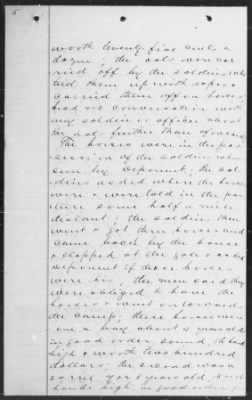 5
worth twenty five cents a
dozen; the oats were car
ried off by the soldiers who
tied them up with ropes &
carried them off on horses;
had no conversation with
any soldier or officer about
the oats further than aforesaid
The horses were in the pos
session of the soldiers when
seen by deponent; the sol
diers asked where the horses
were & were told in the pas
ture some half a mile
distant; the soldiers then
went & got them horses and
came back by the house
& stopped at the gate & asked
deponent if these horses
were his; the men said they
were obliged to have the
horses & went on toward
the camp; these horses were
one a bay about 4 years old
in good order, sound, 16 hands
high & worth two hundred
dollars; the second was a
sorrel
years old,
hands high, in good order